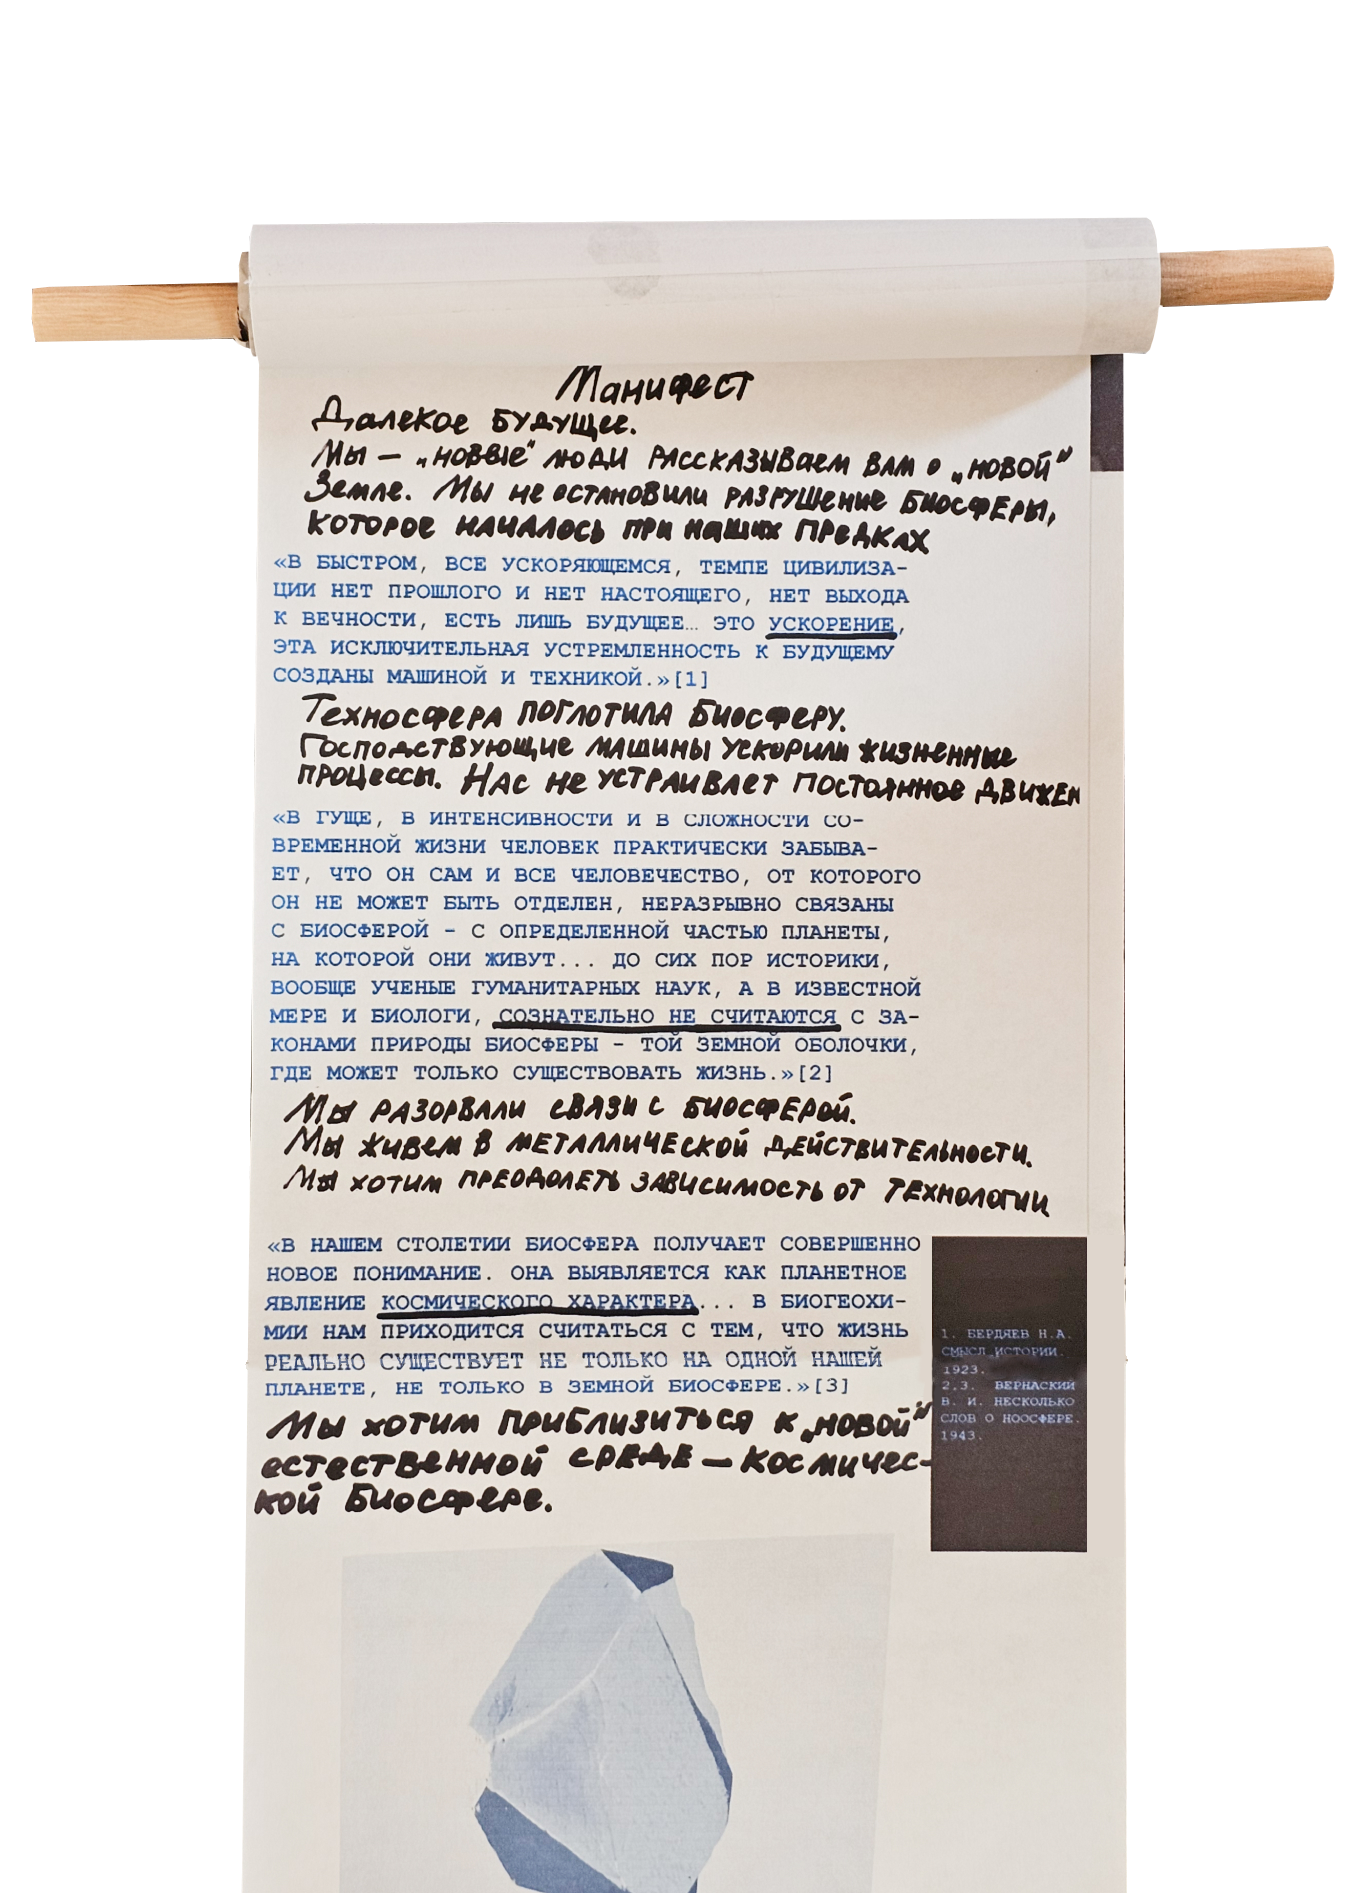 Манифест
Далекое будущее.
Мы — „новые" люди рассказываем вам о „новой"
Земле. Мы не остановили разрушение биосферы,
которое началось при наших предках
«В БЫСТРОМ, ВСЕ УСКОРЯЮЩЕМСЯ, ТЕМПЕ ЦИВИЛИЗА-
ЦИИ НЕТ ПРОШЛОГО И НЕТ НАСТОЯЩЕГО, НЕТ ВЫХОДА
К ВЕЧНОСТИ, ЕСТЬ ЛИШЬ БУДУЩЕЕ… ЭТО УСКОРЕНИЕ,
ЭТА ИСКЛЮЧИТЕЛЬНАЯ УСТРЕМЛЕННОСТЬ К БУДУЩЕМУ
СОЗДАНЫ МАШИНОЙ И ТЕХНИКОЙ.»[1]
Техносфера поглотила биосферу.
Господствующие машины ускорили жизненные
процессы. Нас не устраивает постоянное движен
«В ГУЩЕ, В ИНТЕНСИВНОСТИ И В СЛОЖНОСТИ СО-
ВРЕМЕННОЙ ЖИЗНИ ЧЕЛОВЕК ПРАКТИЧЕСКИ ЗАБЫВА-
ЕТ, ЧТО ОН САМ И ВСЕ ЧЕЛОВЕЧЕСТВО, ОТ КОТОРОГО
ОН НЕ МОЖЕТ БЫТЬ ОТДЕЛЕН, НЕРАЗРЫВНО СВЯЗАНЫ
С БИОСФЕРОЙ – С ОПРЕДЕЛЕННОЙ ЧАСТЬЮ ПЛАНЕТЫ,
НА КОТОРОЙ ОНИ ЖИВУТ... ДО СИХ ПОР ИСТОРИКИ,
ВООБЩЕ УЧЕНЫЕ ГУМАНИТАРНЫХ НАУК, А В ИЗВЕСТНОЙ
МЕРЕ И БИОЛОГИ, СОЗНАТЕЛЬНО НЕ СЧИТАЮТСЯ С ЗА-
КОНАМИ ПРИРОДЫ БИОСФЕРЫ – ТОЙ ЗЕМНОЙ ОБОЛОЧКИ,
ГДЕ МОЖЕТ ТОЛЬКО СУЩЕСТВОВАТЬ ЖИЗНЬ.»[2]
Мы разорвали связи с биосферой.
Мы живем в металлической действительности.
Мы хотим преодолеть зависимость от технологии
«В НАШЕМ СТОЛЕТИИ БИОСФЕРА ПОЛУЧАЕТ СОВЕРШЕННО
НОВОЕ ПОНИМАНИЕ. ОНА ВЫЯВЛЯЕТСЯ КАК ПЛАНЕТНОЕ
ЯВЛЕНИЕ КОСМИЧЕСКОГО ХАРАКТЕРА... В БИОГЕОХИ-
МИИ НАМ ПРИХОДИТСЯ СЧИТАТЬСЯ С ТЕМ, ЧТО ЖИЗНЬ
РЕАЛЬНО СУЩЕСТВУЕТ НЕ ТОЛЬКО НА ОДНОЙ НАШЕЙ
ПЛАНЕТЕ, НЕ ТОЛЬКО В ЗЕМНОЙ БИОСФЕРЕ.»[3]
Мы хотим приблизиться к „новой"
естественной среде — космичес-
кой биосфере.
1. БЕРДЯЕВ Н.А.
СМЫСЛ ИСТОРИИ.
1923.
2.3. ВЕРНАСКИЙ
В. И. НЕСКОЛЬКО
СЛОВ О НООСФЕРЕ.
1943.